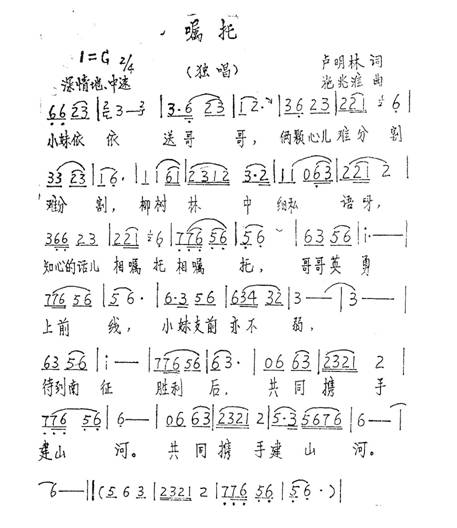 嘱托
1=G 2/4
深情地、中速
(独唱)
卢明林 词
施兆淮 曲
66 23 | 3—3 | 3·6 23 | 12· | 36 23 | 221 6 |
小妹依依 送哥哥,俩颗心儿难分割
33 23 | 16· | 11 61 | 2312 3·2 | 11 063 | 221 2 |
难分 割,柳树林 中 细私 语呀,
366 23 | 221 6 | 776 56 | 56 | 63 56 | i·— |
知心的话儿 相嘱托相嘱 托,哥哥英勇
776 56 | 56· | 6·3 56 | 634 32 | 3— | 3— |
上前 线,小妹支前亦不 弱,
63 56 | i— | 776 56 | 63· | 06 63 | 2321 2 |
待到南 征 胜利 后,共 同 携 手
776 56 | 6— | 06 63 | 2321 2 | 5·3 5676 | 6— |
建山 河。共 同 携 手建 山 河。
6— || (5 6 6 3 | 2321 2 | 776 56 | 56·) |